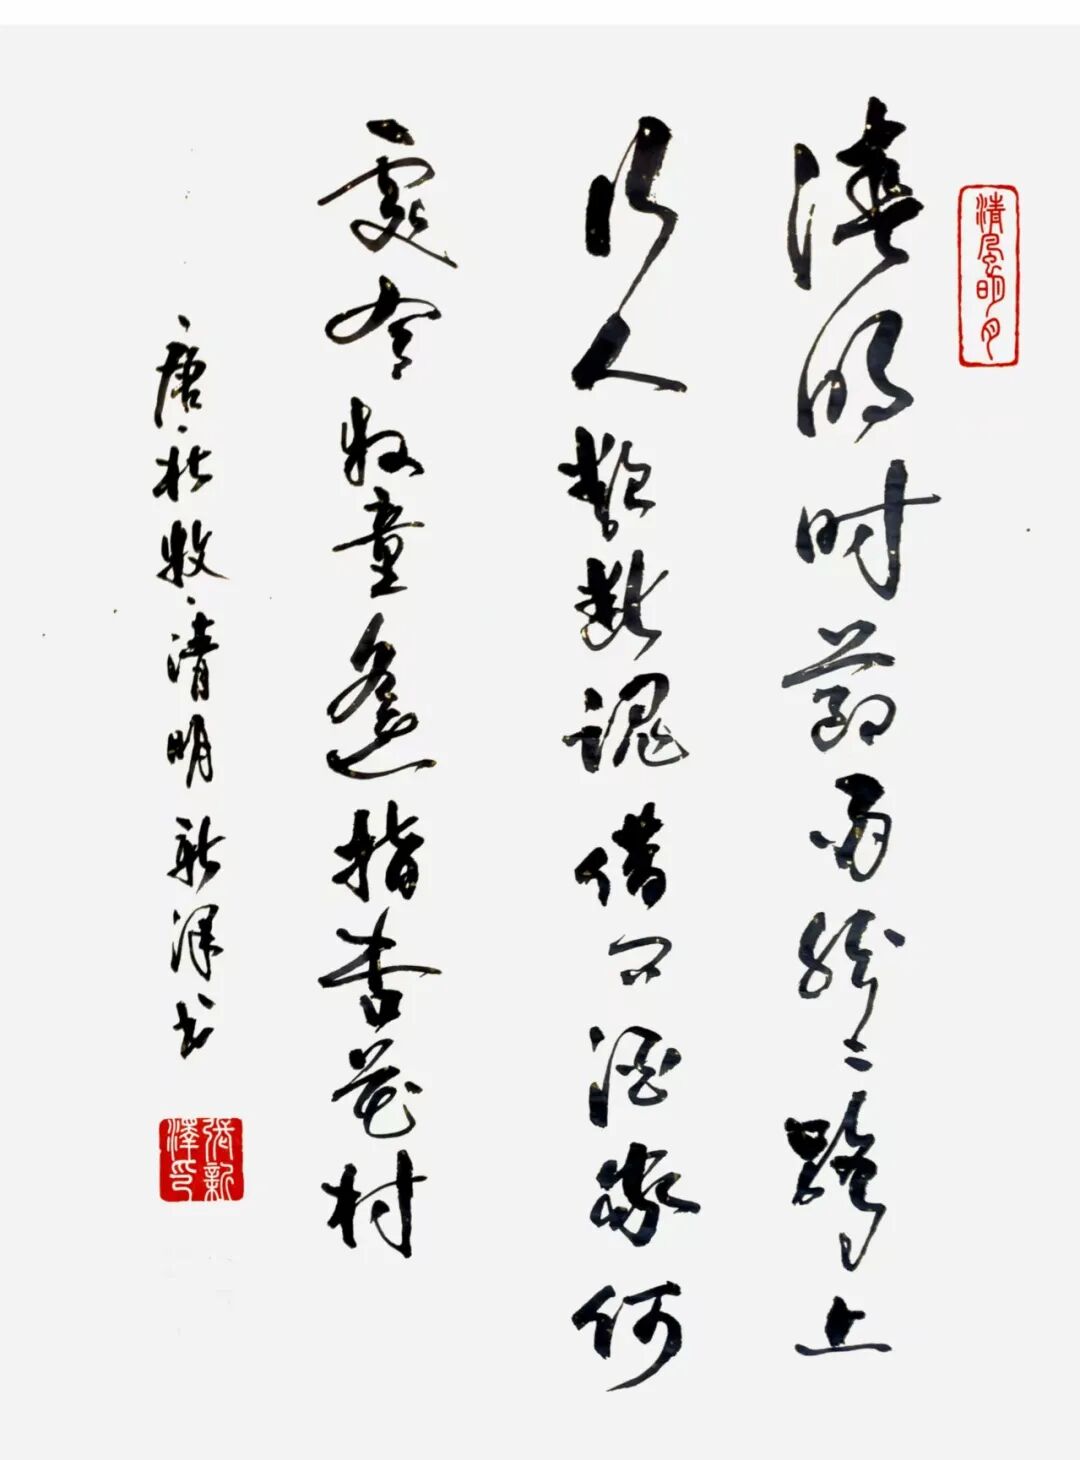 清風明月
清明时节雨纷々路上
行人欲断魂借问酒家何
處有牧童遥指杏花村
唐杜牧清明新泽书
張新澤印